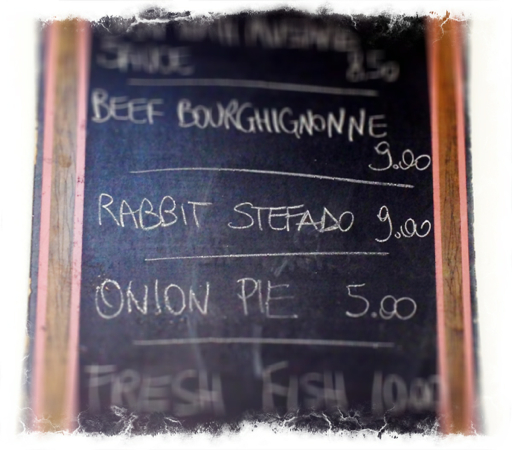 SAUCE 8.50
BEEF BOURGHIGNONNE
9.00
RABBIT STEFADO 9.00
ONION PIE 5.00
FRESH FISH 10.00